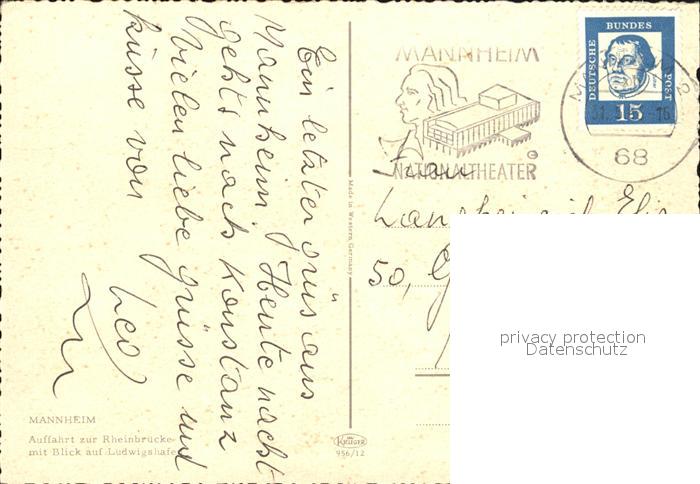 Ein letzter grüs aus
Mannheim. Heute nacht
gehts nach Konstanz
Vielen liebe grüsse und
küsse von
Leo
MANNHEIM
Auffahrt zur Rheinbrücke
mit Blick auf Ludwigshafe
Made in Western Germany
KRÜGER
956/12
MANNHEIM
NATIONALTHEATER
68
DEUTSCHE
BUNDES
POST
15
Frau
50,
privacy protection
Datenschutz